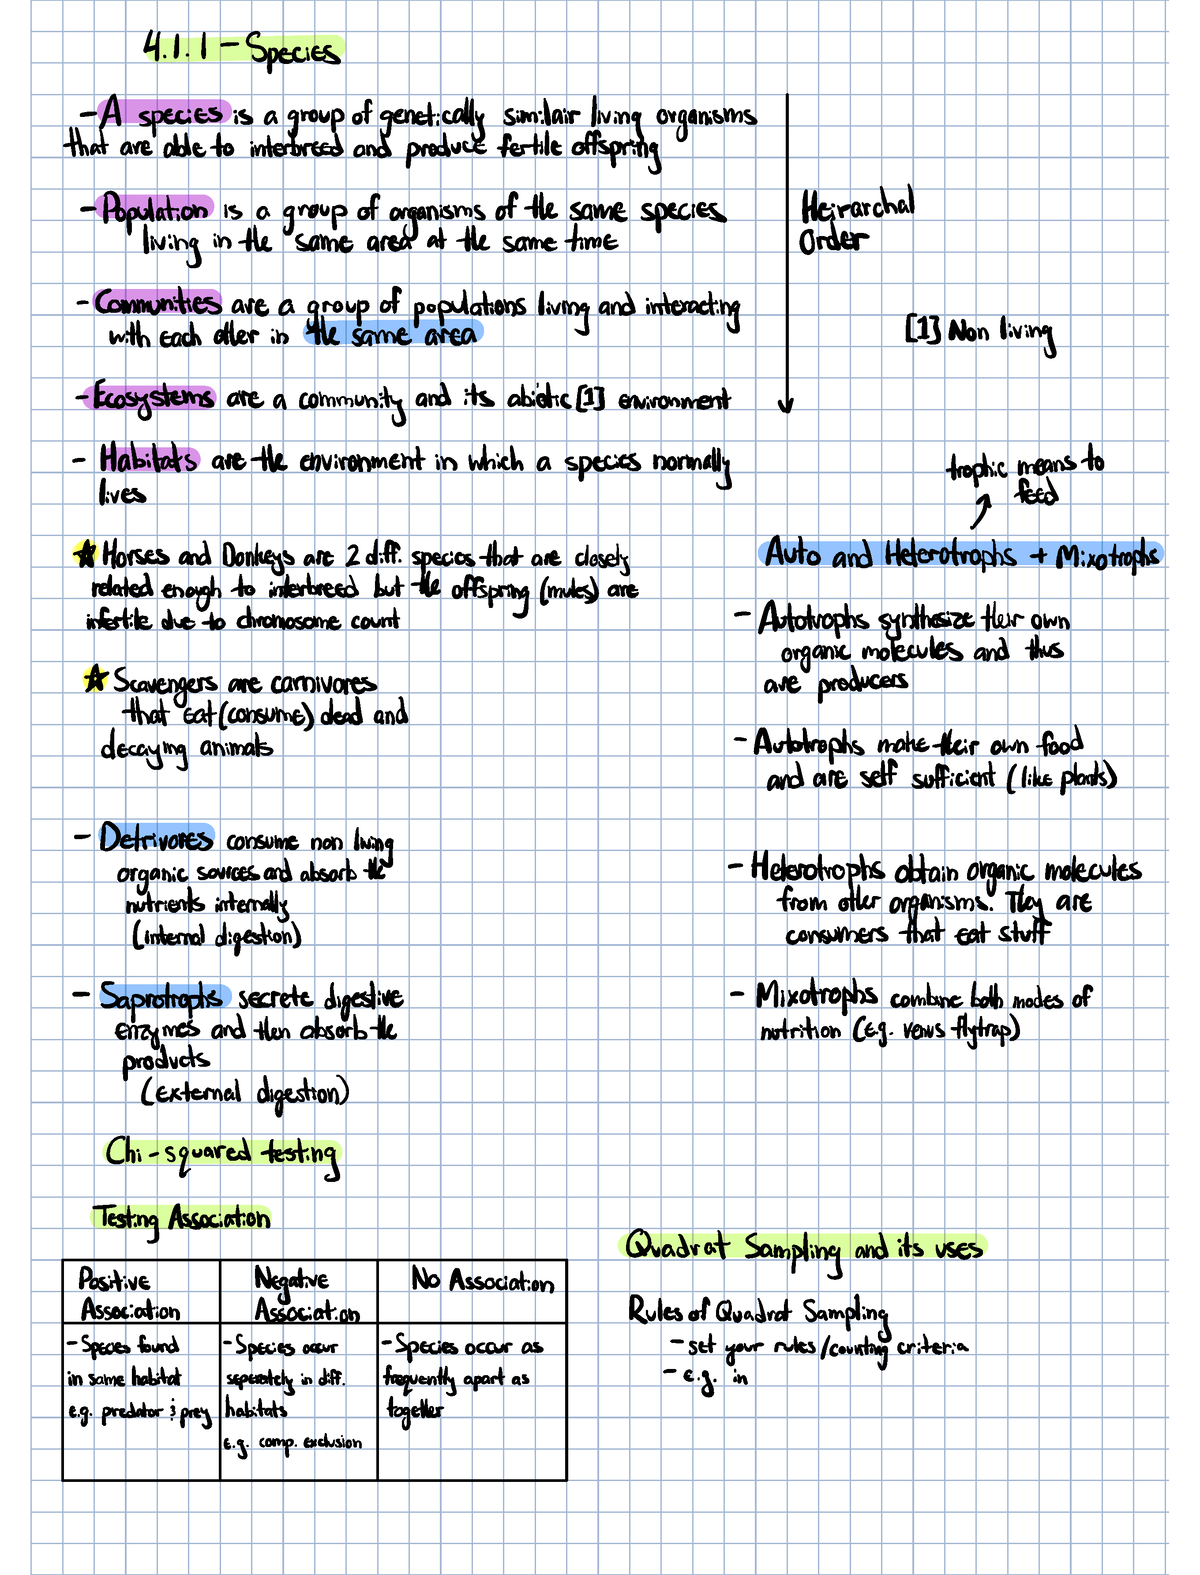 4.1.1 - Species
- A species is a group of genetically similair living organisms
that are able to interbreed and produce fertile offspring
- Population is a group of organisms of the same species
living in the same area at the same time
Heirarchal
Order
- Communities are a group of populations living and interacting
with each other in the same area
[1] Non living
- Ecosystems are a community and its abiotic [1] environment
- Habitats are the environment in which a species normally
lives
★ Horses and Donkeys are 2 diff. species that are closely
related enough to interbreed but the offspring (mules) are
infertile due to chromosome count
★ Scavengers are carnivores
that eat (consume) dead and
decaying animals
- Detrivores consume non living
organic sources and absorb the
nutrients internally
(internal digestion)
- Saprotrophs secrete digestive
enzymes and then absorb the
products
(External digestion)
trophic means to
feed
Auto and Heterotrophs + Mixotrophs
- Autotrophs synthesize their own
organic molecules and thus
are producers
- Autotrophs make their own food
and are self sufficient (like plants)
- Heterotrophs obtain organic molecules
from other organisms. They are
consumers that eat stuff
- Mixotrophs combine both modes of
nutrition (e.g. venus flytrap)
Chi-squared testing
Testing Association
Positive
Association
Negative
Association
No Association
- Species found
in same habitat
e.g. predator & prey
- Species occur
seperately in diff.
habitats
e.g. comp. exclusion
- Species occur as
frequently apart as
together
Quadrat Sampling and its uses
Rules of Quadrat Sampling
- set your rules/counting criteria
- e.g. in